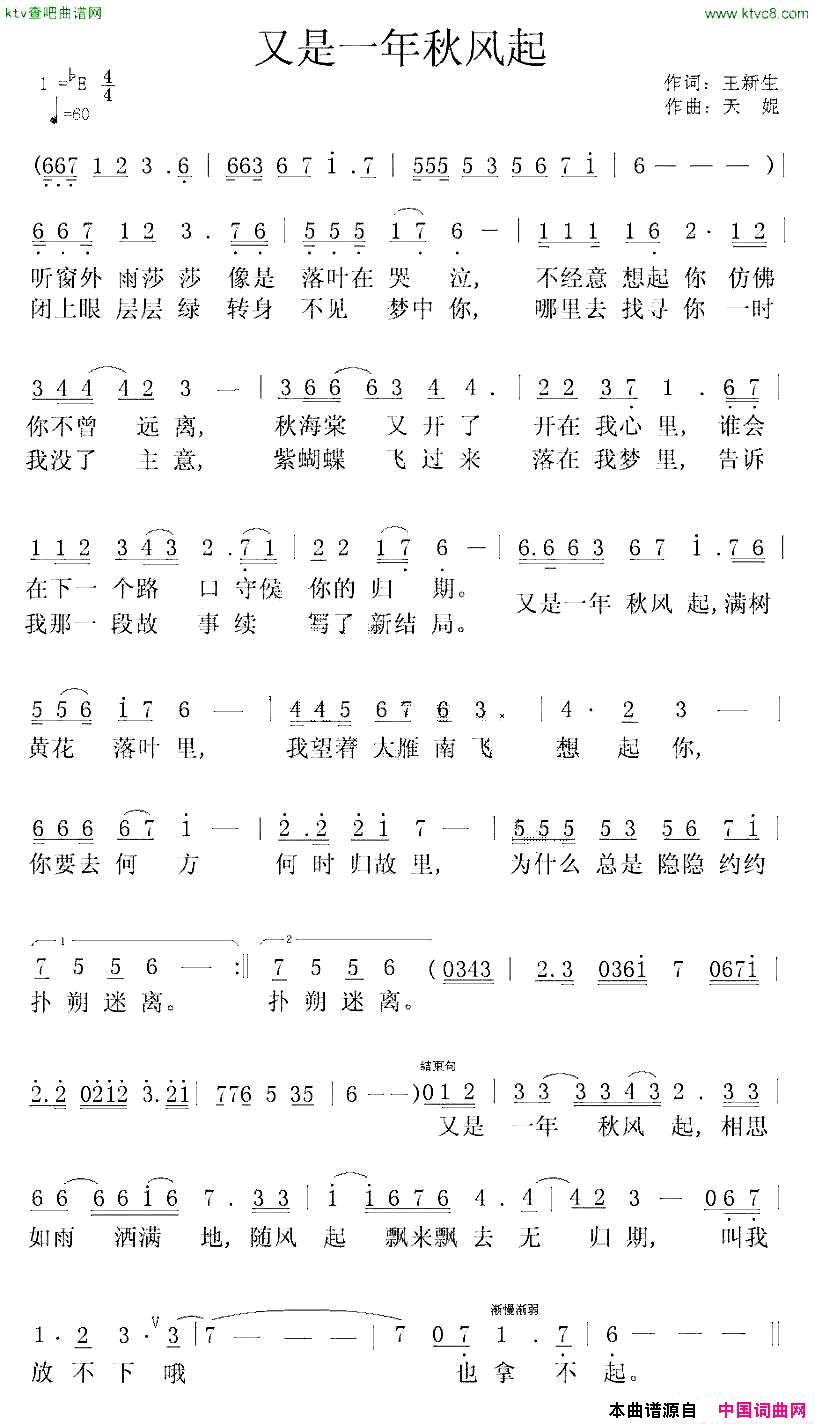 ktv查吧曲谱网
www.ktvc8.com
又是一年秋风起
1=♭E 4/4
作词：王新生
♩=60
作曲：天 妮
(667 1 2 3 .6 | 663 6 7 i .7 | 555 5 3 5 6 7 i | 6 — — — )|
6 6 7 1 2 3 . 7 6 | 5 5 5 1 7 6 — | 1 1 1 1 6 2 · 1 2 |
听窗外 雨莎 莎 像是 落叶在 哭 泣, 不经意 想起 你 仿佛
闭上眼 层层 绿 转身 不见 梦中 你, 哪里去 找寻 你 一时
3 4 4 4 2 3 — | 3 6 6 6 3 4 4 . | 2 2 3 7 1 . 6 7 |
你不曾 远 离, 秋海棠 又 开 了 开在 我心 里, 谁会
我没了 主 意, 紫蝴蝶 飞 过 来 落在 我梦 里, 告诉
1 1 2 3 4 3 2 . 7 1 | 2 2 1 7 6 — | 6.663 6 7 i .76 |
在下一 个路 口 守侯 你的 归 期。
又是一年 秋风 起,满树
我那一 段故 事 续 写了 新结 局。
5 5 6 i 7 6 — | 4 4 5 6 7 6 3 . | 4 · 2 3 — |
黄花 落叶 里, 我望着 大雁 南 飞 想 起 你,
6 6 6 6 7 i — | 2 . 2 2 i 7 — | 5 5 5 5 3 5 6 7 i |
你要去 何 方 何 时 归故 里, 为什么 总是 隐隐 约约
1 2
7 5 5 6 — :‖ 7 5 5 6 (0343 | 2.3 036i 7 067i |
扑 朔 迷 离。 扑 朔 迷 离。
结束句
2.2 02i2 3.2i | 776 5 35 | 6 — — )012 | 3 3 3 3 4 3 2 . 3 3 |
又是 一年 秋风 起, 相思
6 6 6 6 i 6 7 . 3 3 | i i 6 7 6 4 . 4 | 4 2 3 — 0 6 7 |
如雨 洒满 地, 随风 起 飘来飘 去 无 归 期, 叫我
渐慢渐弱
1 · 2 3 · V 3 | 7 — — — | 7 0 7 1 . 7 | 6 — — ‖
放 不 下 哦 也 拿 不 起。
本曲谱源自 中国词曲网